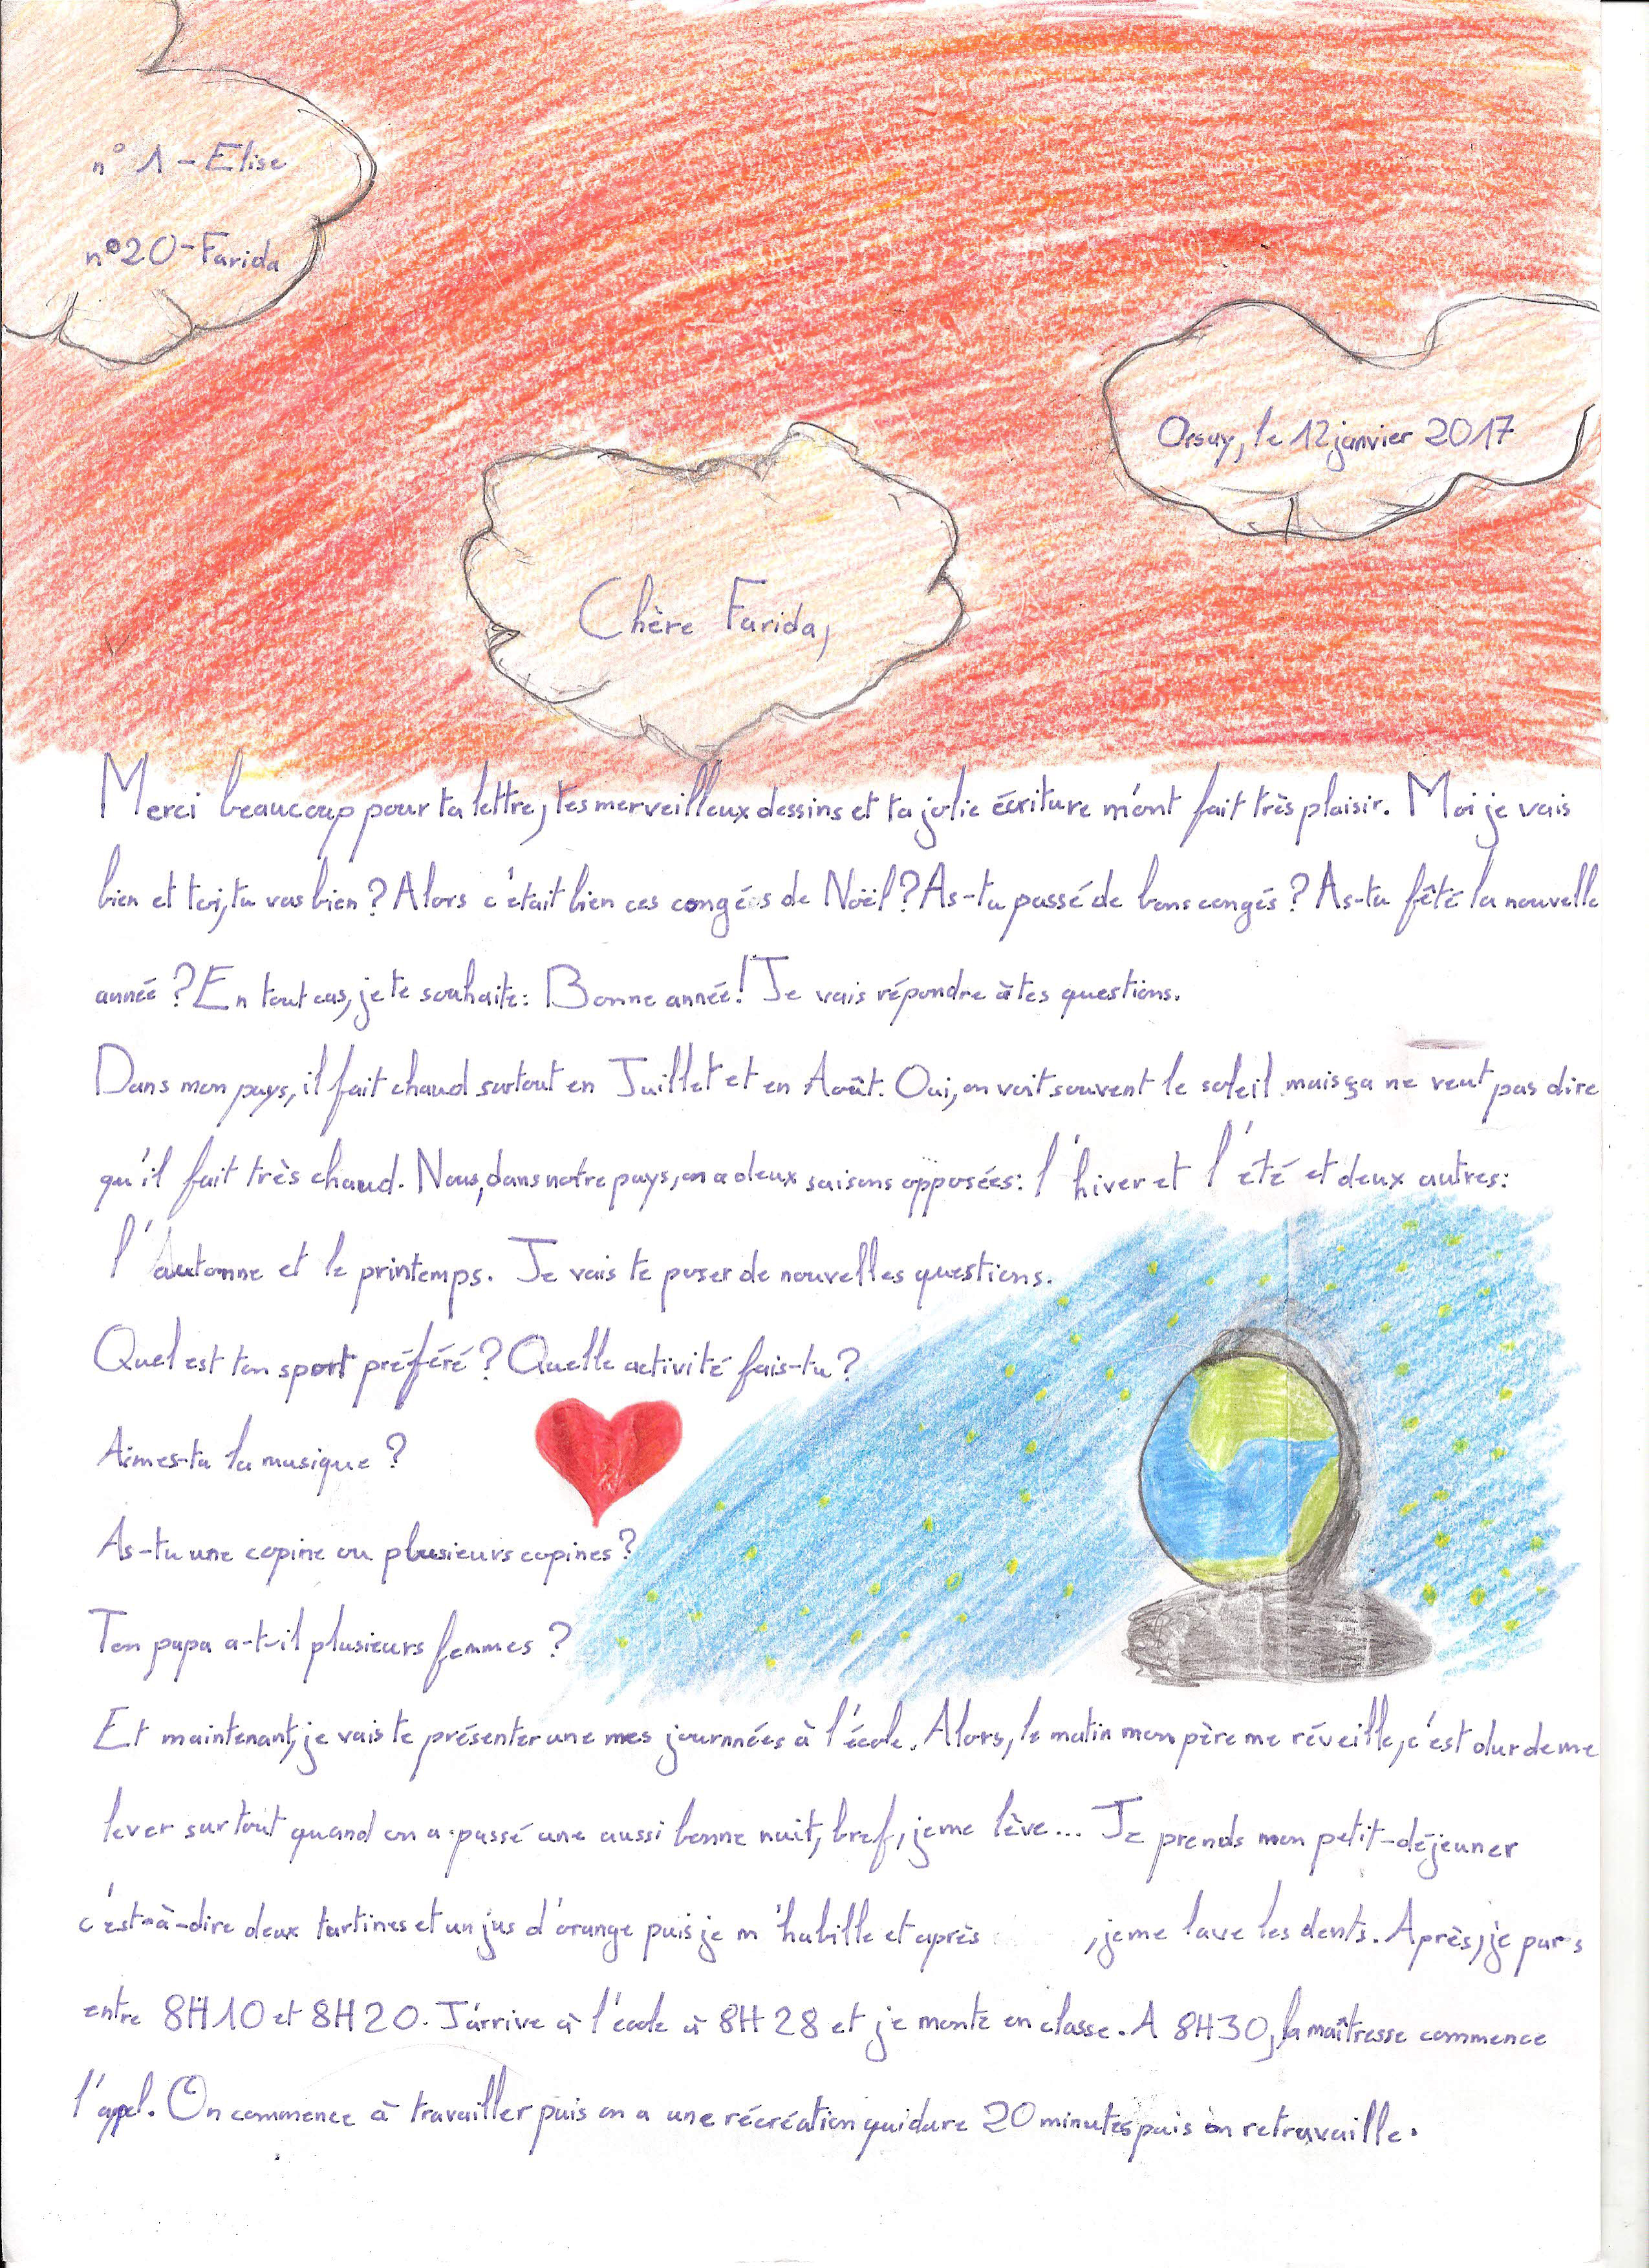 n° 1 - Elise
n°20 - Farida
Orsay, le 12 janvier 2017
Chère Farida,
Merci beaucoup pour ta lettre, tes merveilleux dessins et ta jolie écriture m'ont fait très plaisir. Moi je vais
bien et toi, tu vas bien ? Alors c'était bien ces congés de Noël ? As-tu passé de bons congés ? As-tu fêté la nouvelle
année ? En tout cas, je te souhaite : Bonne année ! Je vais répondre à tes questions.
Dans mon pays, il fait chaud surtout en Juillet et en Août. Oui, on voit souvent le soleil mais ça ne veut pas dire
qu'il fait très chaud. Nous, dans notre pays, on a deux saisons opposées : l'hiver et l'été et deux autres :
l'automne et le printemps. Je vais te poser de nouvelles questions.
Quel est ton sport préféré ? Quelle activité fais-tu ?
Aimes-tu la musique ?
As-tu une copine ou plusieurs copines ?
Ton papa a-t-il plusieurs femmes ?
Et maintenant, je vais te présenter une mes journnées à l'école. Alors, le matin mon père me réveille, c'est dur de me
lever surtout quand on a passé une aussi bonne nuit, bref, je me lève... Je prends mon petit-déjeuner
c'est-à-dire deux tartines et un jus d'orange puis je m'habille et après , je me lave les dents. Après, je pars
entre 8H10 et 8H20. J'arrive à l'école à 8H28 et je monte en classe. A 8H30, la maîtresse commence
l'appel. On commence à travailler puis on a une récréation qui dure 20 minutes puis on retravaille.